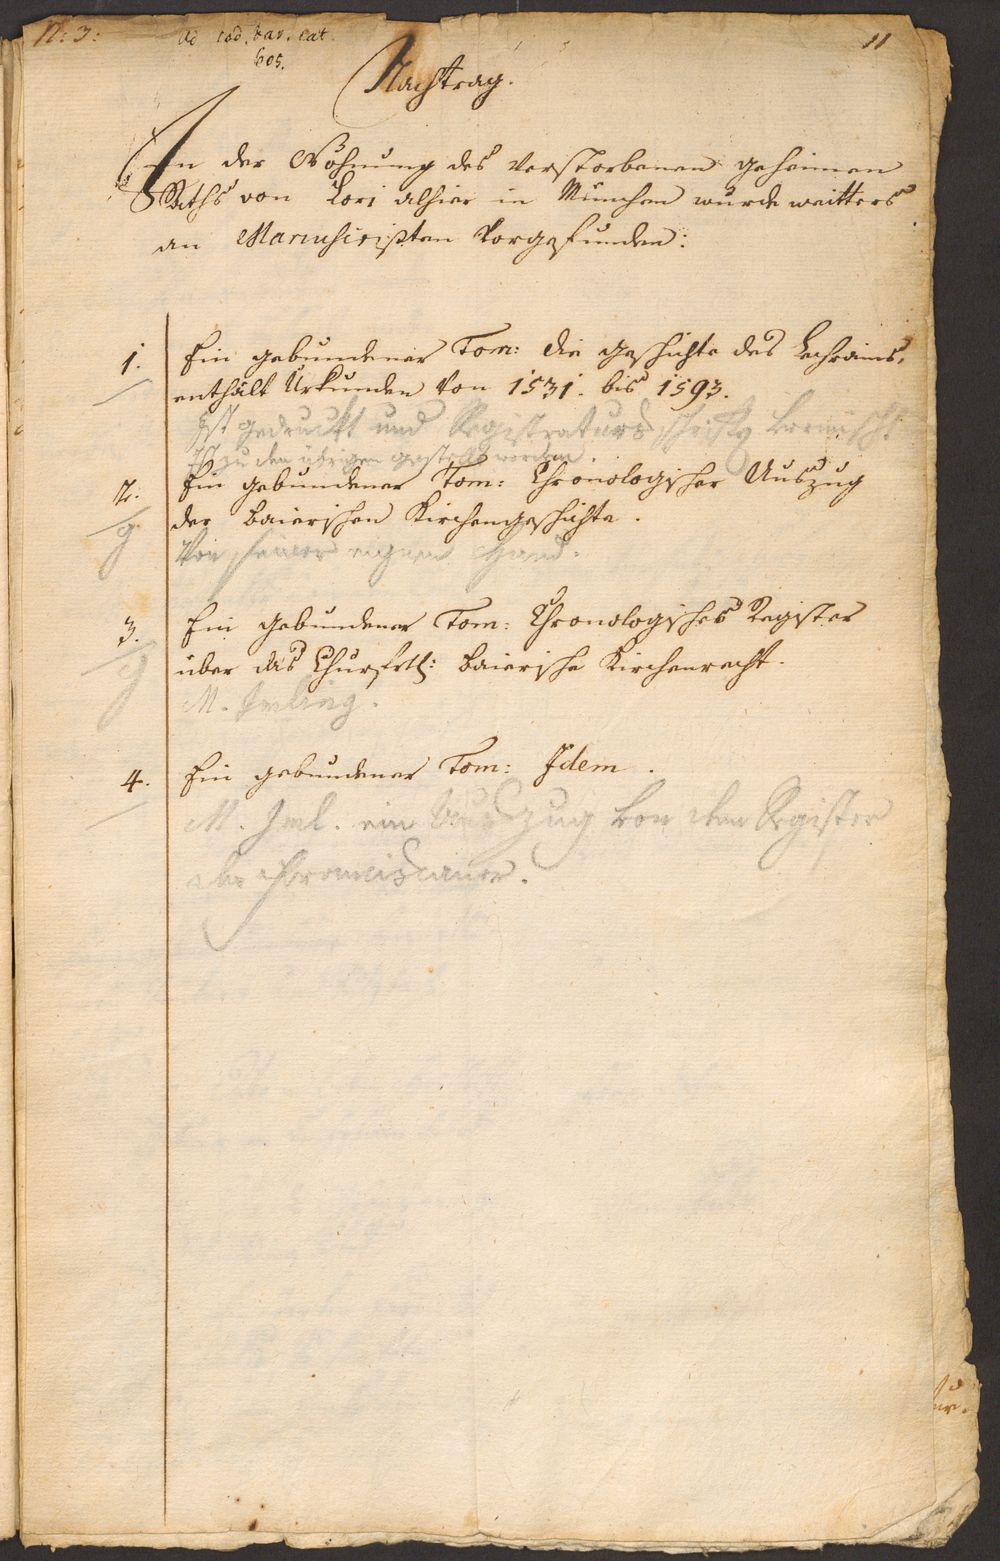 N: 3:
ad cod. bav. cat.
605.
11
Nachtrag.
In der Wohnung des verstorbenen geheimen
Raths von Lori alhier in München wurde weitters
an Manuscripten vorgefunden:
1. Ein gebundener Tom: die geschichte des Lechrains,
enthält Urkunden von 1531. bis 1593.
Ist gedruckt und Registraturs
Ist zu den übrigen gestellt worden.
2. Ein gebundener Tom: Chronologischer Auszug
der baierischen Kirchengeschichte.
g
Von seiner eignen Hand.
3. Ein gebundener Tom: Chronologisches Register
über das Churfrtl: baierische Kirchenrecht.
g
M.
4. Ein gebundener Tom: Idem.
M. ein Auszug von dem Register
der Franciscaner.